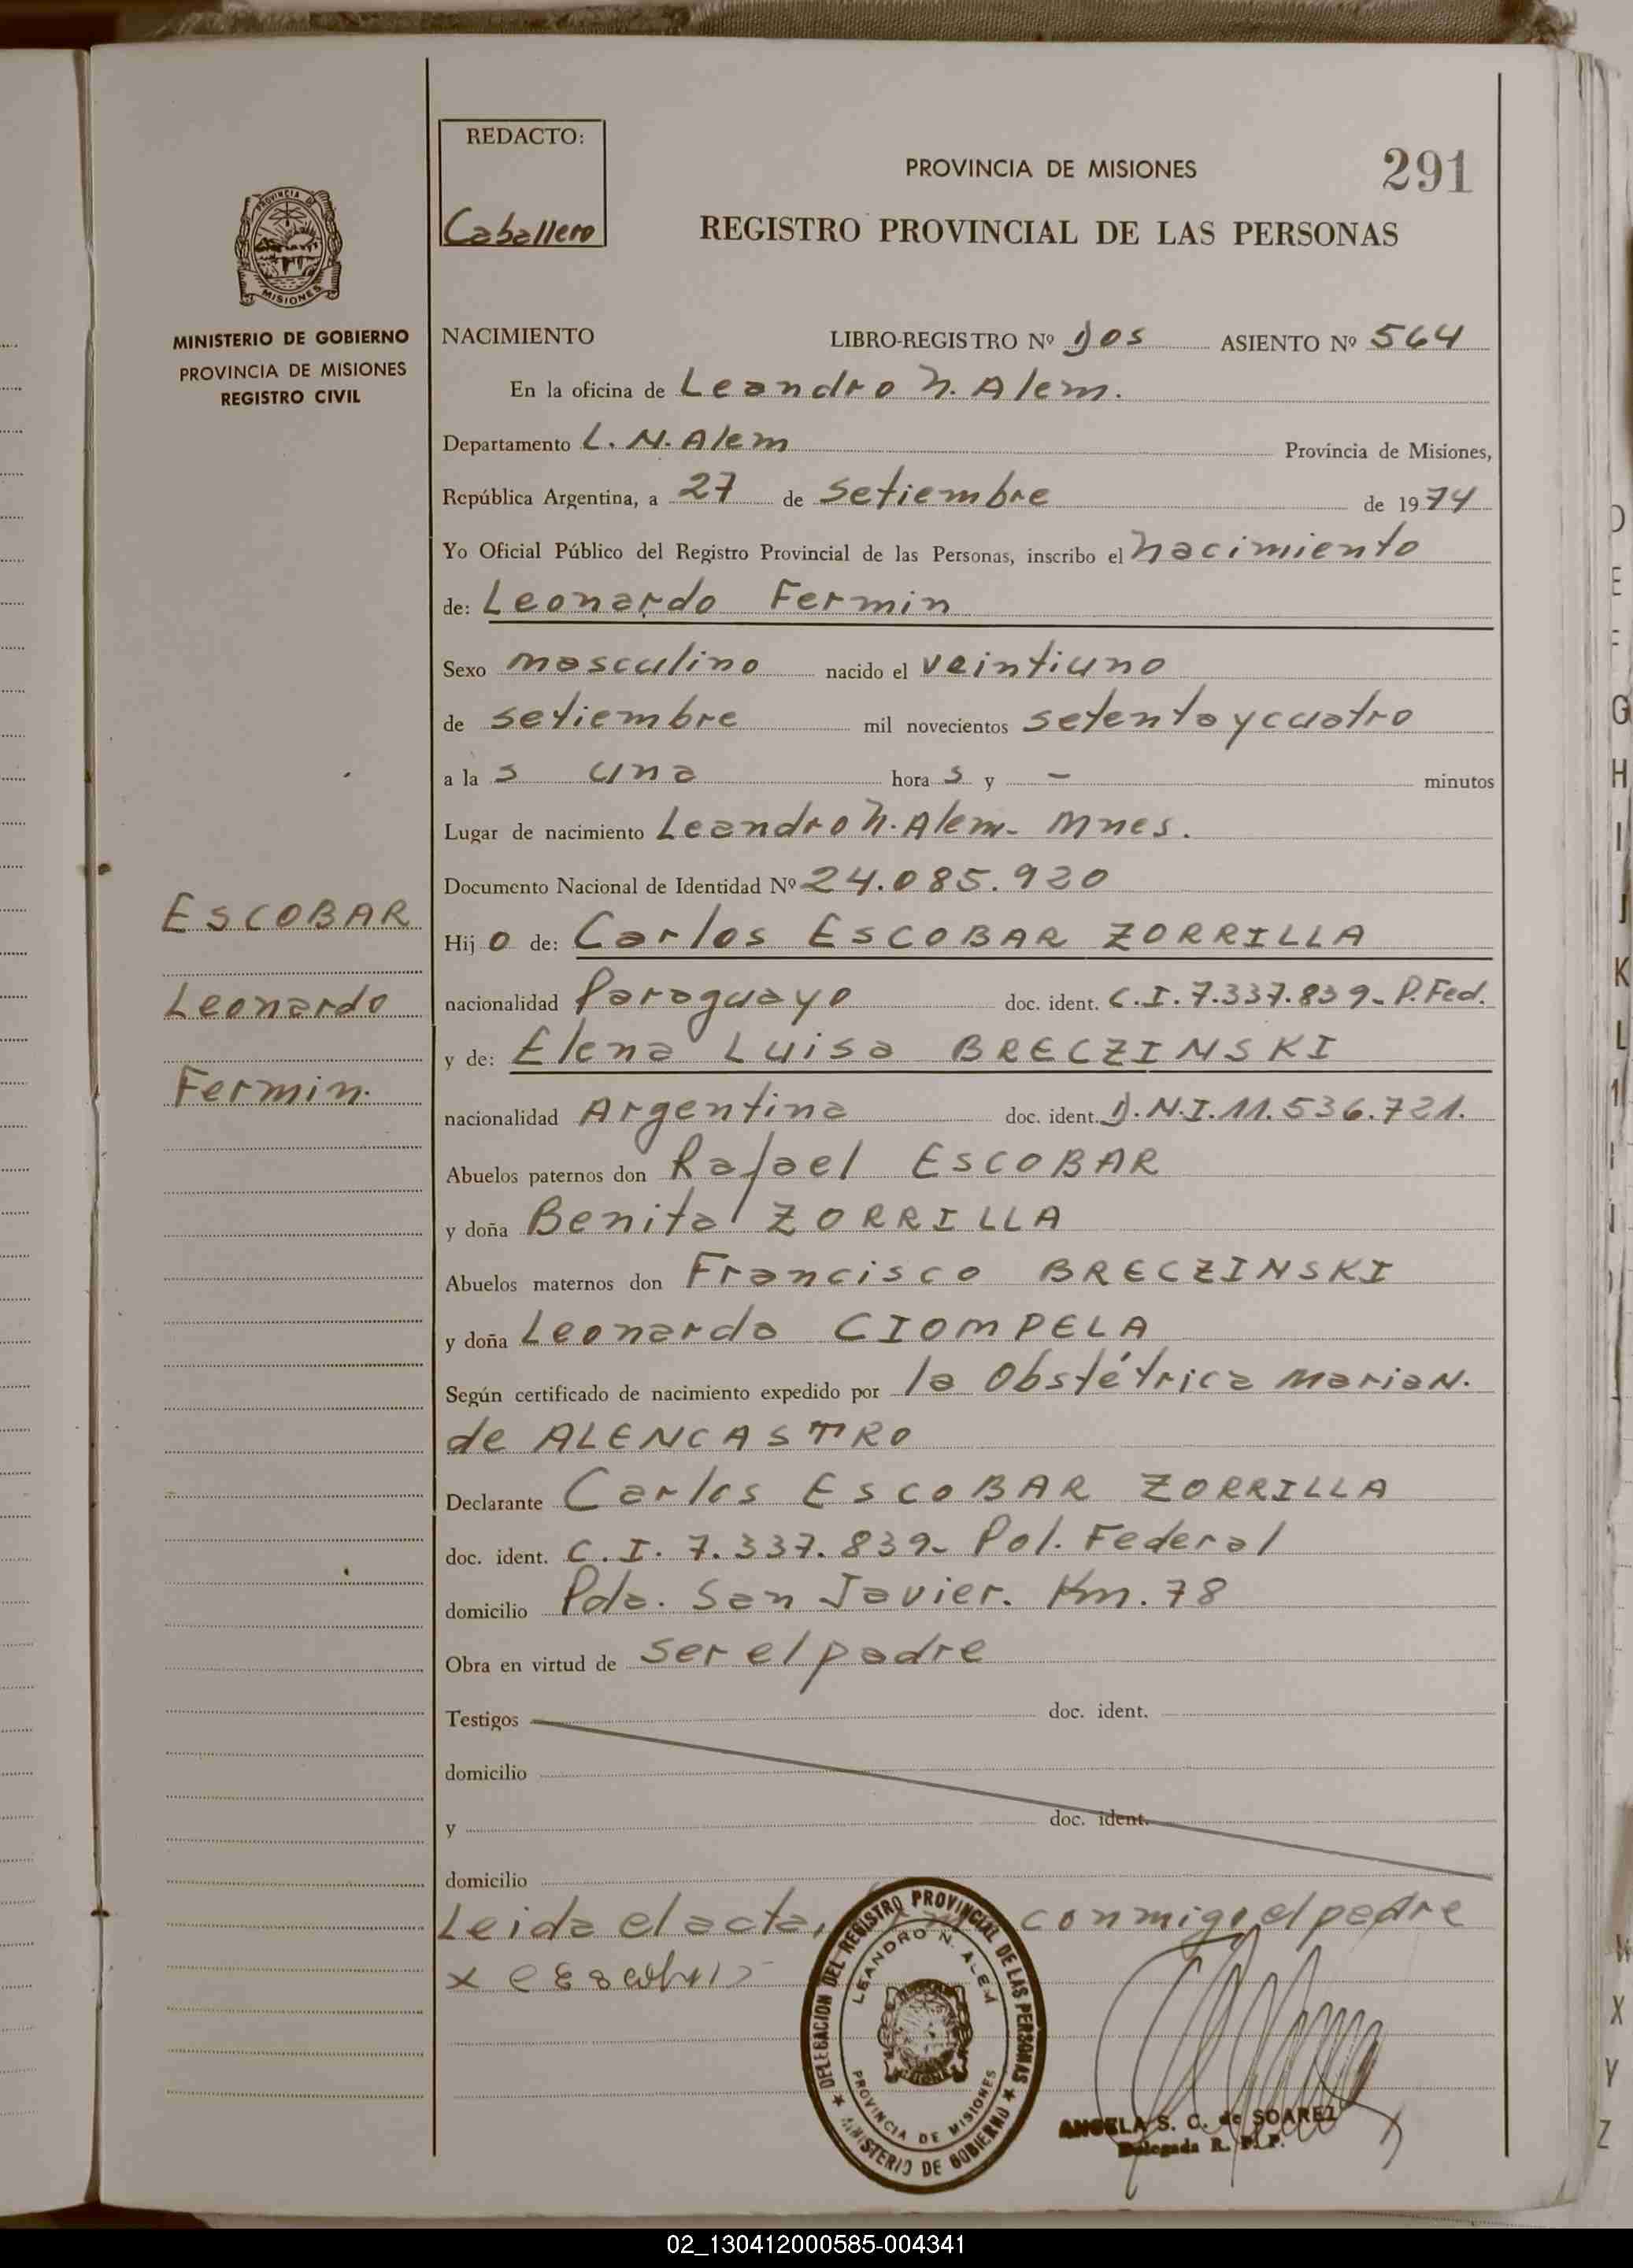 REDACTO:
Caballero
PROVINCIA DE MISIONES
291
REGISTRO PROVINCIAL DE LAS PERSONAS
MINISTERIO DE GOBIERNO
PROVINCIA DE MISIONES
REGISTRO CIVIL
NACIMIENTO LIBRO-REGISTRO Nº Dos ASIENTO Nº 564
En la oficina de Leandro N. Alem.
Departamento L. N. Alem Provincia de Misiones,
República Argentina, a 27 de setiembre de 1974
Yo Oficial Público del Registro Provincial de las Personas, inscribo el nacimiento
de: Leonardo Fermin
Sexo masculino nacido el veintiuno
de setiembre mil novecientos setenta y cuatro
a la s una hora s y - minutos
Lugar de nacimiento Leandro N. Alem- Mnes.
Documento Nacional de Identidad Nº 24.085.920
ESCOBAR
Leonardo
Fermin.
Hij o de: Carlos ESCOBAR ZORRILLA
nacionalidad Paraguayo doc. ident. C.I. 7.337.839- P.Fed.
y de: Elena Luisa BRECZINSKI
nacionalidad Argentina doc. ident. D.N.I. 11.536.721.
Abuelos paternos don Rafael ESCOBAR
y doña Benita ZORRILLA
Abuelos maternos don Francisco BRECZINSKI
y doña Leonarda CIOMPELA
Según certificado de nacimiento expedido por la Obstétrica Maria N.
de ALENCASTRO
Declarante Carlos ESCOBAR ZORRILLA
doc. ident. C.I. 7.337.839- Pol. Federal
domicilio Pda. San Javier. Km. 78
Obra en virtud de ser el padre
Testigos doc. ident.
domicilio
y doc. ident.
domicilio
Leida el acta, conmigo el padre
x
DELEGACION DEL REGISTRO PROVINCIAL DE LAS PERSONAS
LEANDRO N. ALEM
PROVINCIA DE MISIONES
MINISTERIO DE GOBIERNO
ANGELA S. C. de SOAREZ
Delegada R. P. P.
D
E
F
G
H
I
J
K
L
X
Y
Z
02_130412000585-004341